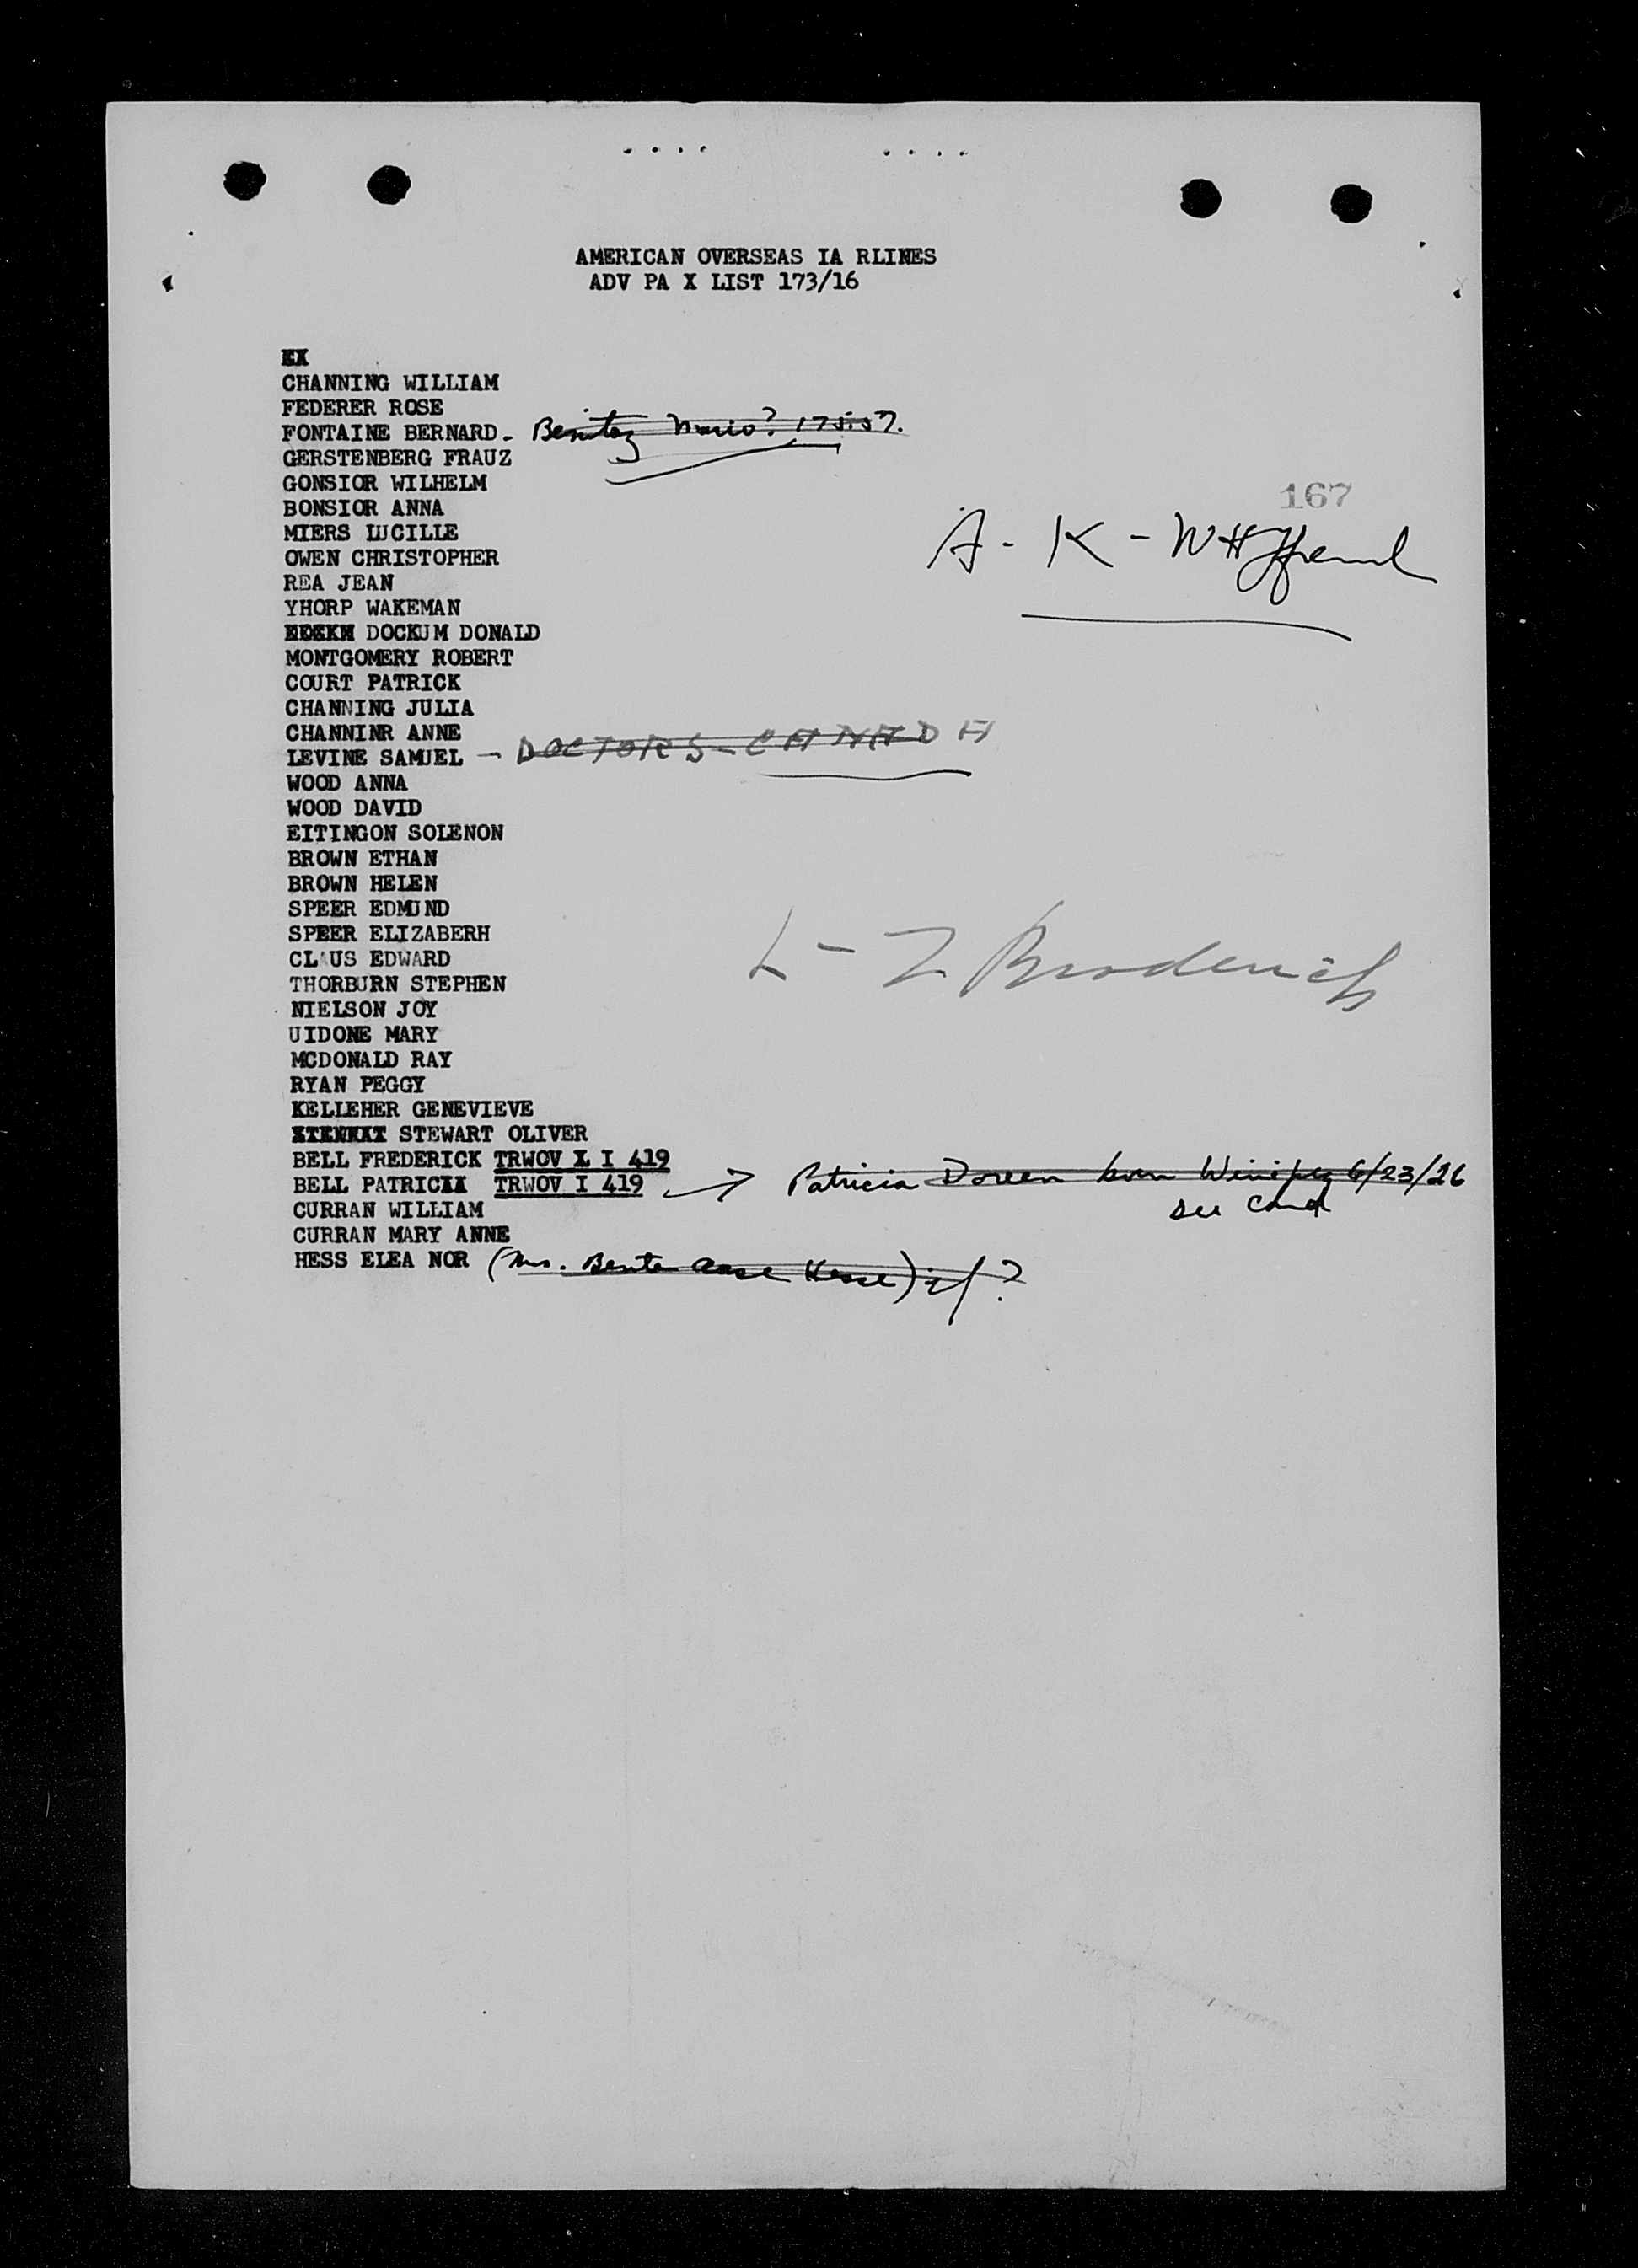 AMERICAN OVERSEAS IA RLINES
ADV PA X LIST 173/16
EX
CHANNING WILLIAM
FEDERER ROSE
FONTAINE BERNARD - Benitez Mario?
GERSTENBERG FRAUZ
GONSIOR WILHELM
167
BONSIOR ANNA
MIERS LUCILLE
A - K - WH
OWEN CHRISTOPHER
REA JEAN
YHORP WAKEMAN
DOCKUM DONALD
MONTGOMERY ROBERT
COURT PATRICK
CHANNING JULIA
CHANNINR ANNE
LEVINE SAMUEL - DOCTORS - CANADA
WOOD ANNA
WOOD DAVID
EITINGON SOLENON
BROWN ETHAN
BROWN HELEN
SPEER EDMUND
SPEER ELIZABERH
CLAUS EDWARD
L - Z Broderick
THORBURN STEPHEN
NIELSON JOY
UIDONE MARY
MCDONALD RAY
RYAN PEGGY
KELLEHER GENEVIEVE
STEWART OLIVER
BELL FREDERICK TRWOV I I 419
BELL PATRICIA TRWOV I 419 → Patricia Doreen born Winipeg 6/23/26
see card
CURRAN WILLIAM
CURRAN MARY ANNE
HESS ELEA NOR (Mrs. Bente Aase Hesse) if ?